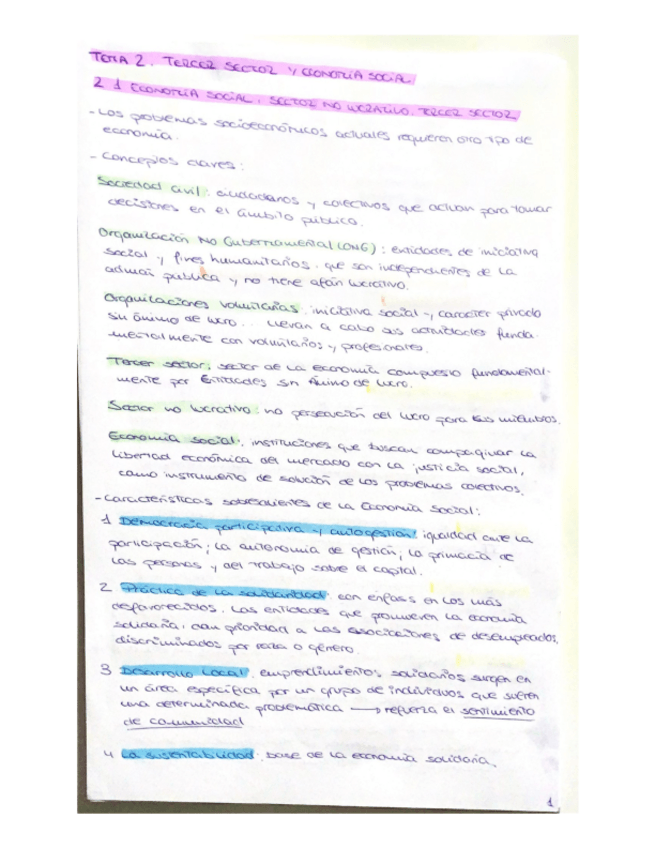 TEMA 2. TERCER SECTOR Y ECONOMÍA SOCIAL
2.1 ECONOMÍA SOCIAL, SECTOR NO LUCRATIVO, TERCER SECTOR
- Los problemas socioeconómicos actuales requieren otro tipo de
economía.
- Conceptos claves:
Sociedad civil: ciudadanos y colectivos que actúan para tomar
decisiones en el ámbito público.
Organización No Gubernamental (ONG): entidades de iniciativa
social y fines humanitarios, que son independientes de la
admón pública y no tiene afán lucrativo.
Organizaciones voluntarias: iniciativa social y carácter privado
sin ánimo de lucro... llevan a cabo sus actividades funda-
mentalmente con voluntarios y profesionales.
Tercer sector: sector de la economía compuesto fundamental-
mente por Entidades sin Ánimo de Lucro.
Sector no lucrativo: no persecución del lucro para sus miembros.
Economía social: instituciones que buscan compaginar la
libertad económica del mercado con la justicia social,
como instrumento de solución de los problemas colectivos.
- Características sobresalientes de la Economía Social:
1 Democracia participativa y autogestión: igualdad ante la
participación; la autonomía de gestión; la primacía de
las personas y del trabajo sobre el capital.
2 Práctica de la solidaridad: con énfasis en los más
desfavorecidos. Las entidades que promueven la economía
solidaria, dan prioridad a las asociaciones de desempleados,
discriminados por raza o género.
3 Desarrollo Local: emprendimientos solidarios surgen en
un área específica por un grupo de individuos que sufren
una determinada problemática → refuerza el sentimiento
de comunidad
4 La sustentabilidad: base de la economía solidaria.
1